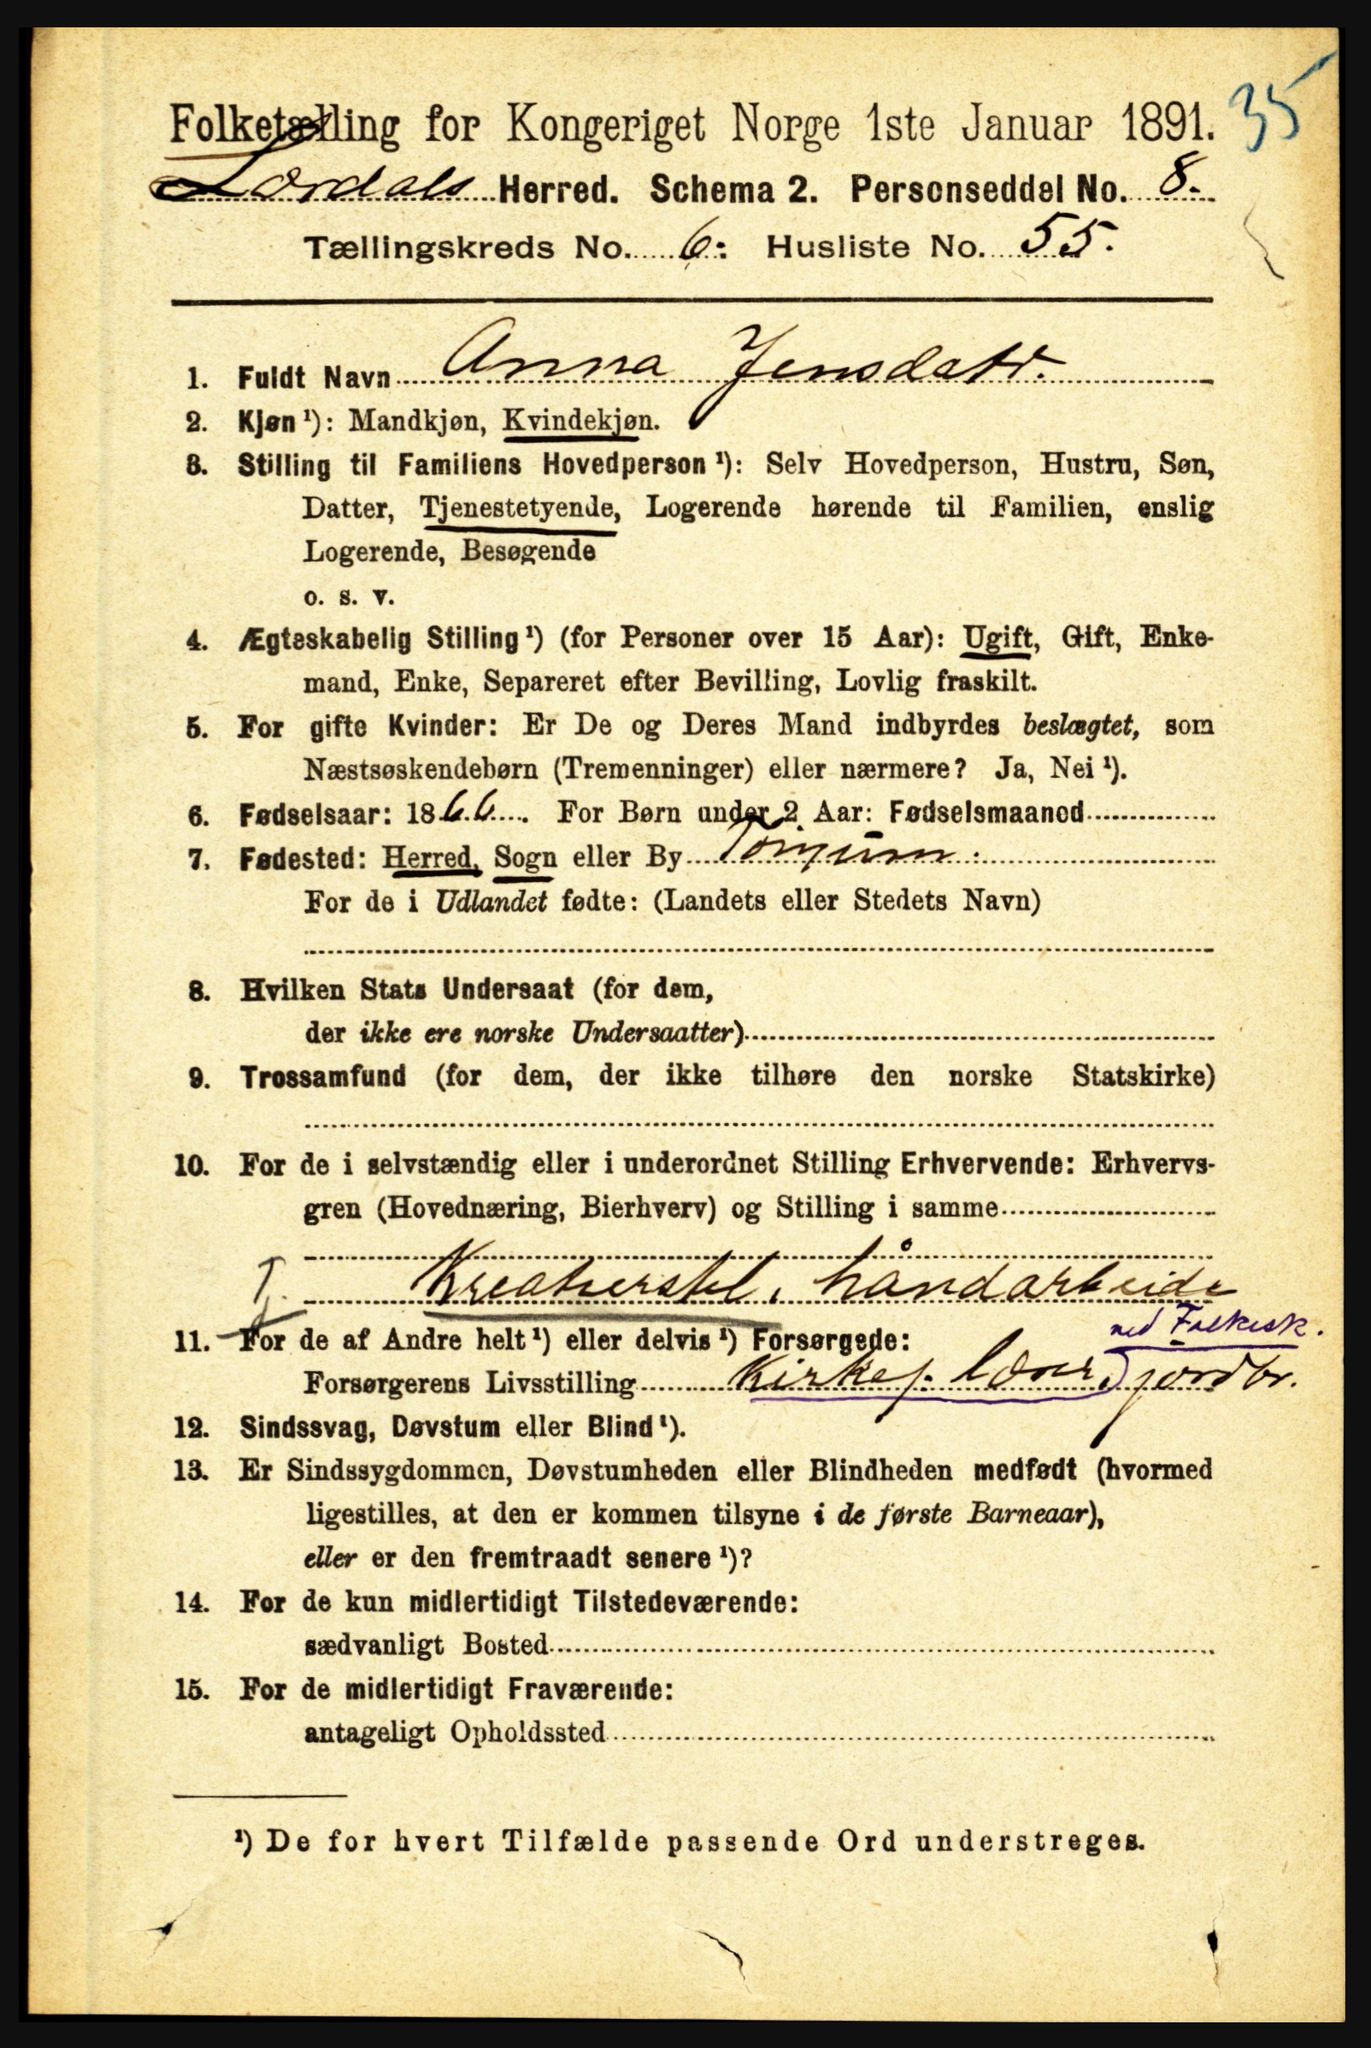 35
Folketælling for Kongeriget Norge 1ste Januar 1891.
Lærdals Herred. Schema 2. Personseddel No. 8.
Tællingskreds No. 6: Husliste No. 55.
1. Fuldt Navn Anna Jensdatr.
2. Kjøn ¹): Mandkjøn, Kvindekjøn.
3. Stilling til Familiens Hovedperson ¹): Selv Hovedperson, Hustru, Søn,
Datter, Tjenestetyende, Logerende hørende til Familien, enslig
Logerende, Besøgende
o. s. v.
4. Ægteskabelig Stilling ¹) (for Personer over 15 Aar): Ugift, Gift, Enke-
mand, Enke, Separeret efter Bevilling, Lovlig fraskilt.
5. For gifte Kvinder: Er De og Deres Mand indbyrdes beslægtet, som
Næstsøskendebørn (Tremenninger) eller nærmere? Ja, Nei ¹).
6. Fødselsaar: 1866. For Børn under 2 Aar: Fødselsmaaned
7. Fødested: Herred, Sogn eller By Tønjum.
For de i Udlandet fødte: (Landets eller Stedets Navn)
8. Hvilken Stats Undersaat (for dem,
der ikke ere norske Undersaatter)
9. Trossamfund (for dem, der ikke tilhøre den norske Statskirke)
10. For de i selvstændig eller i underordnet Stilling Erhvervende: Erhvervs-
gren (Hovednæring, Bierhverv) og Stilling i samme
Kreaturstel, håndarbeide
11. For de af Andre helt ¹) eller delvis ¹) Forsørgede:
Forsørgerens Livsstilling Kirkes. jordbr.
12. Sindssvag, Døvstum eller Blind ¹).
13. Er Sindssygdommen, Døvstumheden eller Blindheden medfødt (hvormed
ligestilles, at den er kommen tilsyne i de første Barneaar),
eller er den fremtraadt senere ¹)?
14. For de kun midlertidigt Tilstedeværende:
sædvanligt Bosted
15. For de midlertidigt Fraværende:
antageligt Opholdssted
¹) De for hvert Tilfælde passende Ord understreges.